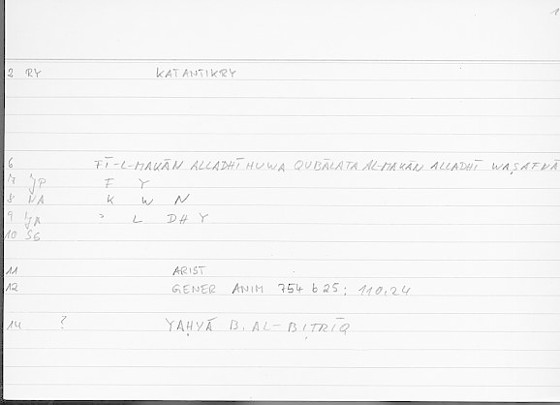 1
2 RY KATANTIKRY
6 FĪ-L-MAKĀN ALLADHĪ HUWA QUBĀLATA AL-MAKĀN ALLADHĪ WAṢAFNĀ
7 JP F Y
8 NA K W N
9 JA ʾ L DH Y
10 SG
11 ARIST
12 GENER ANIM 754 b 25; 110,24
14 ? YAḤYĀ B. AL-BIṬRĪQ